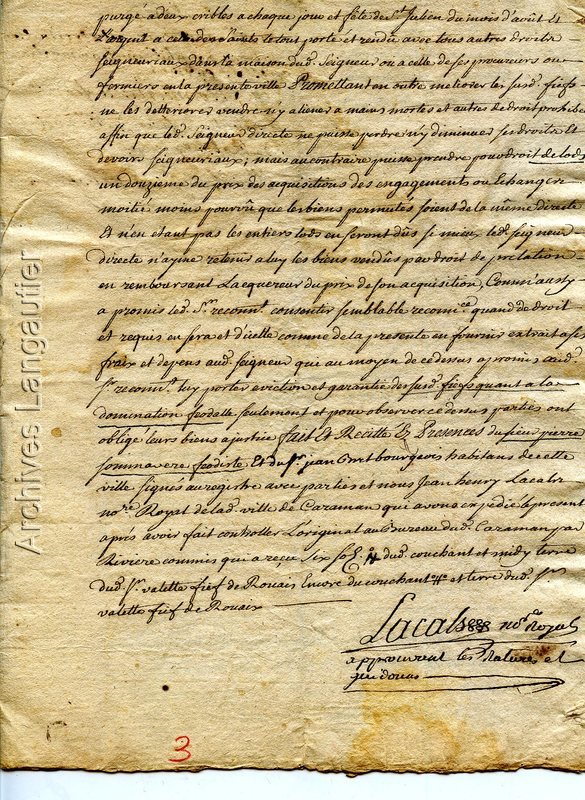 purgé a deux cribles a chaque jour et fête de St. Julien du mois d'août et
L'argent a celui de le tout porte et rendu avec tous autres droits
seigneuriaux dans la maison dud. Seigneur ou a celle de ses procureurs ou
fermiers en la presente ville Promettant en outre meliorer les susd. fiefs
ne les deteriorer vendre n'y aliener a mains mortes et autres de droit prohibés
affin que led. Seigneur directe ne puisse perdre n'y diminuer ses droits et
devoirs seigneuriaux; mais au contraire puisse prendre pour droit de lods
un douzième du prix des acquisitions des engagements ou Echangere
moitié moins pourvû que les biens permutés soient de la même directe
Et n'en etant pas les entiers lods en seront dûs si mieux led. seigneur
directe n'ayme retenir a luy les biens vendûs par droit de prelation
en remboursant L'acquereur du prix de son acquisition, Comm'aussy
a promis led. Sr. reconnt. consentir semblable reconnce. quand de droit
et requis en sera et d'icelle comme de la presente en fournir extrait a ses
fraix et depens aud. seigneur qui au moyen de ce dessus a promis aud.
Sr. reconnt. luy porter eviction et garantie des susd. fiefs quant a la
domination feodalle seulement et pour observer ce dessus parties ont
obligé leurs biens a justice fait Et Recitté Es Presences du sieur pierre
sommavere feodiste Et du Sr. jean bourgeois habitans de cette
ville signés au registre avec parties et nous Jean henry Lacalm
nore. Royal de lad. ville de Caraman qui avons expedié le present
apres avoir fait controller L'original au Bureau dud. Caraman par
Riviere commis qui a reçu six sols # dud. couchant et midy terre
dud. Sr. valette fief de Rouaix Encore du couchant # et terre dud. Sr.
valette fief de Rouaix
Lacalm nore. Royal
approuvant les ratures et
guidons
3
Archives Langautier